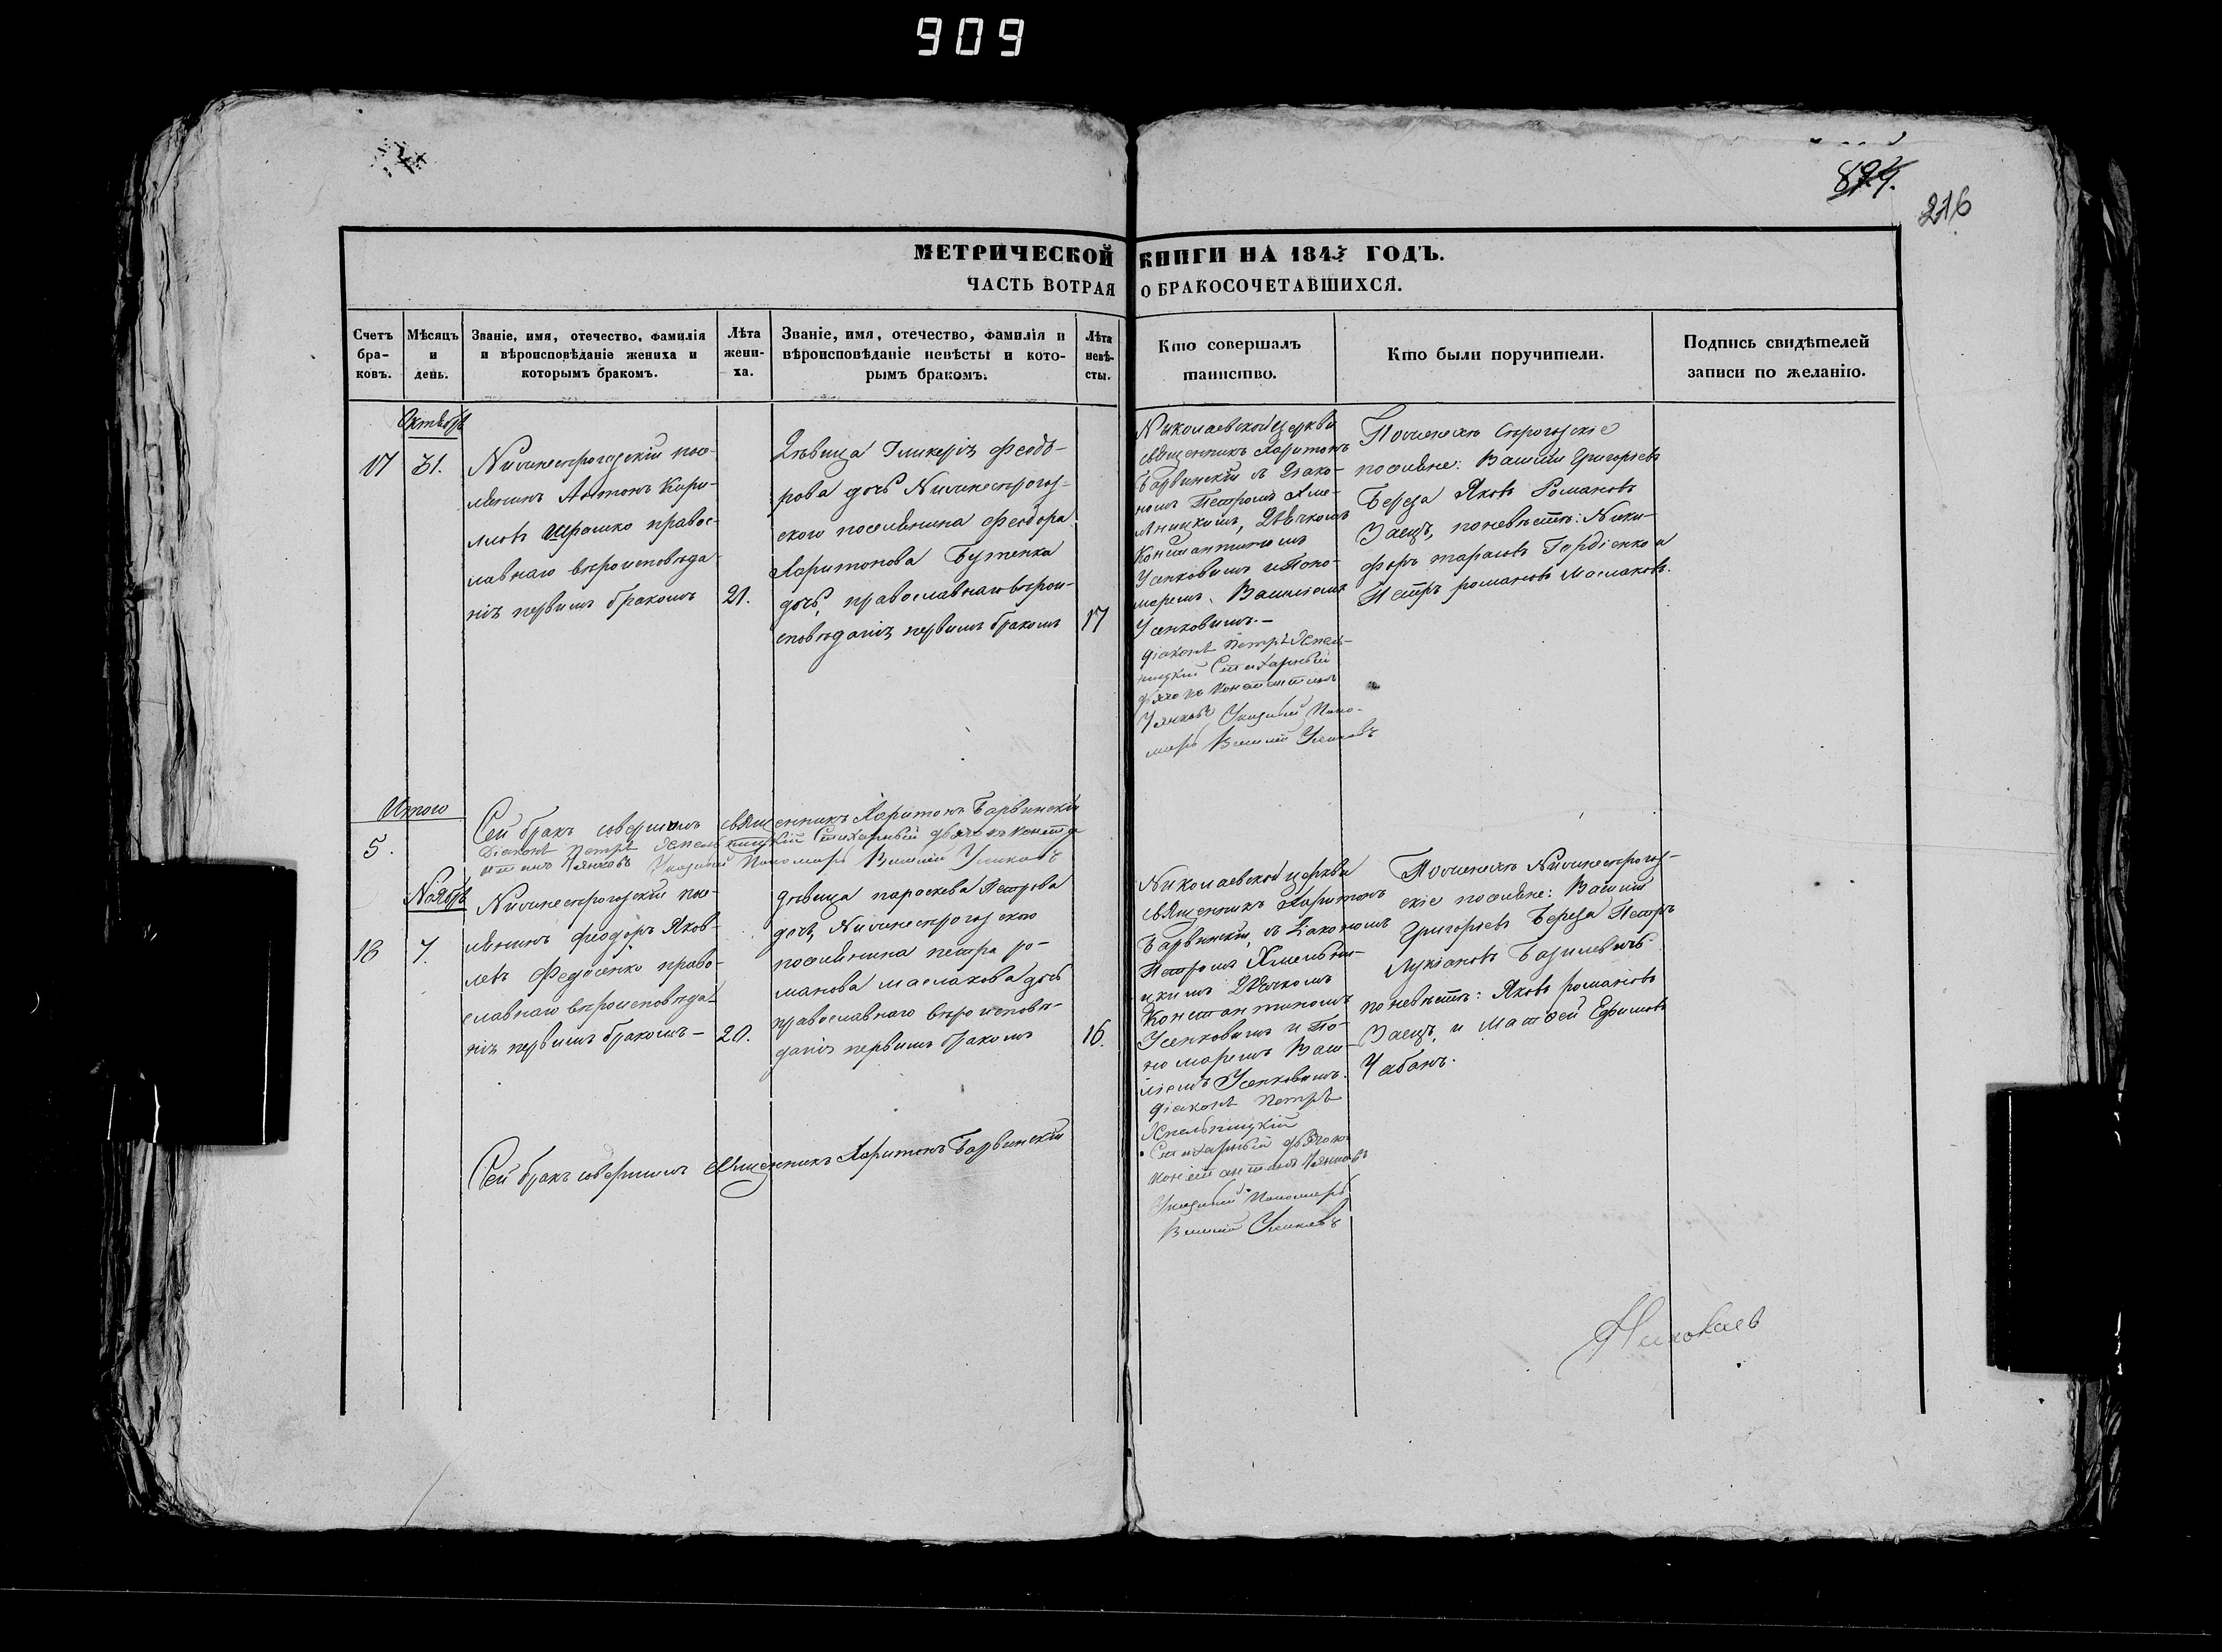 909
894.
216
МЕТРИЧЕСКОЙ КНИГИ НА 1843 ГОДЪ.
ЧАСТЬ ВОТРАЯ О БРАКОСОЧЕТАВШИХСЯ.
Счетъ
бра-
ковъ.
Мѣсяцъ
и
день.
Званіе, имя, отечество, фамилія
и вѣроисповѣданіе жениха и
которымъ бракомъ.
Лѣта
жени-
ха.
Званіе, имя, отечество, фамилія и
вѣроисповѣданіе невѣсты и кото-
рымъ бракомъ.
Лѣта
невѣ-
сты.
Кто совершалъ
таинство.
Кто были поручители.
Подпись свидѣтелей
записи по желанію.
Октябрь
17
31.
Нижнесѣрогозскій посе-
лянинъ Антонъ Кири-
ловъ православ-
лавнаго вѣроисповѣда
нія первымъ бракомъ
21.
Дѣвица Гликерія Феодо-
рова дочь Нижнесѣрогоз-
ского поселянина Феодора
Харитонова Бутенка
дочь, православнаго вѣрои-
сповѣданія первымъ бракомъ
17
Николаевской церкви
священникъ Харитонъ
Барвинскій съ Діако-
номъ Петромъ Хме-
льницкимъ, Дьячкомъ
Константиномъ
Усенковымъ и Поно-
маремъ Василіемъ
Усенковымъ.-
діаконъ Петръ Хмель-
ницкій Стихарный
дьячокъ Константинъ
Указный Поно-
марь Василій Усенковъ
По женихѣ Сѣрогозскіе
поселяне: Василій Григорьевъ
Береза Яковъ Романовъ
Заецъ, по невѣстѣ: Ники-
форъ Тарасовъ Гордіенко и
Петръ Романовъ Маслаковъ.
Итого
5.
Сей бракъ совершилъ священникъ Харитонъ Барвинскій
Діаконъ Петръ Хмельницкій Стихарный дьячокъ Конста
нтинъ Указный Пономарь Василій Усенковъ
Ноябрь
18
7.
Нижнесѣрогозскій посе-
лянинъ Феодоръ Яков-
левъ Федосенко право-
славнаго вѣроисповѣда-
нія первымъ бракомъ-
20.
дѣвица Параскева Петрова
дочь, Нижнесѣрогозского
поселянина Петра Ро-
манова Маслакова дочь
православнаго вѣроисповѣ-
данія первымъ бракомъ
16.
Николаевской церкви
священникъ Харитонъ
Барвинскій, съ Діакономъ
Петромъ Хмельни-
цкимъ Дьячкомъ
Константиномъ
Усенковымъ и По-
номаремъ Васи-
ліемъ Усенковымъ.
діаконъ Петръ
Хмельницкій
Стихарный дьячокъ
Константинъ
Указный Пономарь
Василій Усенковъ
По женихѣ Нижнесѣрогоз-
скіе поселяне: Василій
Григорьевъ Береза Петръ
Лукіановъ Базилевичъ
по невѣстѣ: Яковъ Романовъ
Заецъ, и Матѳей Ефимовъ
Чабанъ.
Сей бракъ совершилъ Священникъ Харитонъ Барвинскій
Николаев